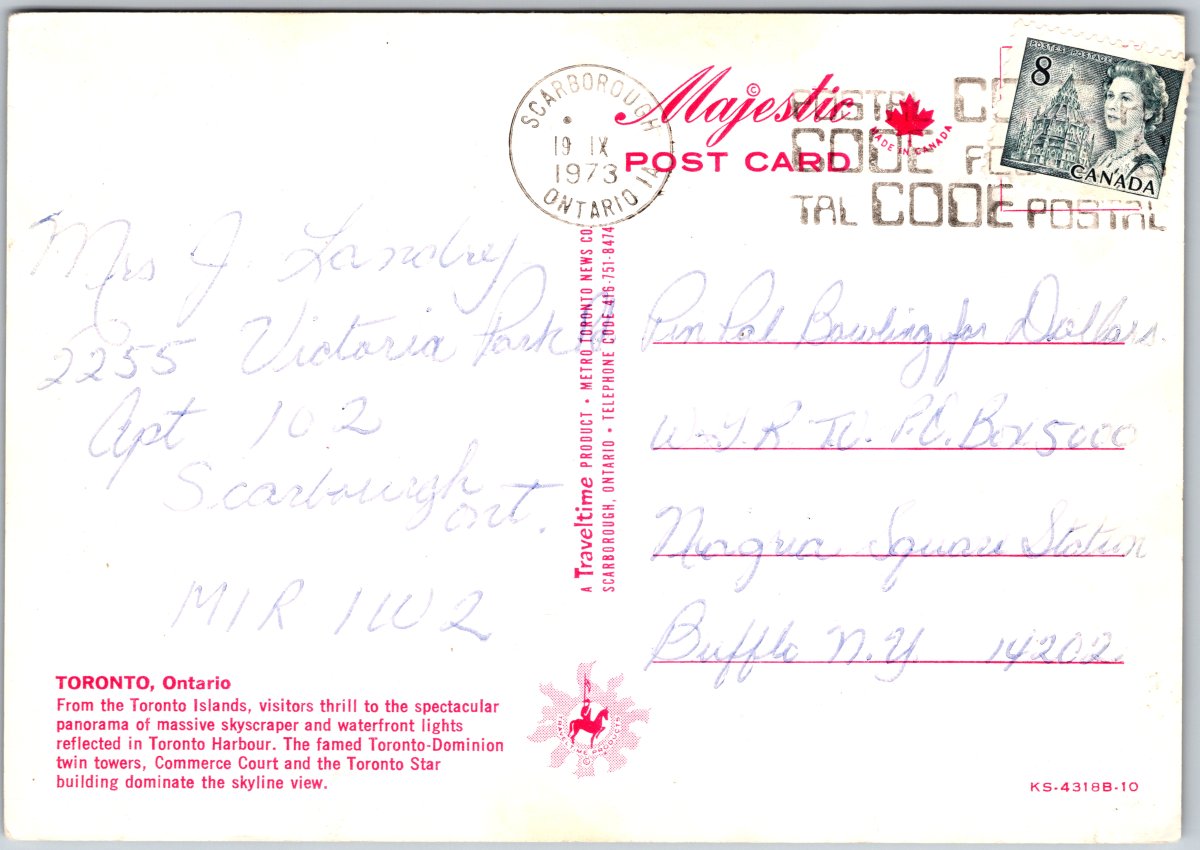 SCARBOROUGH
19 IX
1973
ONTARIO 1A
Majestic ©
POST CARD
MADE IN CANADA
POSTAL CODE
CODE POSTAL
POSTES POSTAGE
8
CANADA
Mrs J. Landry
2255 Victoria Park
Apt 102
Scarbourgh
Ont.
M1R 1W2
A Traveltime PRODUCT • METRO TORONTO NEWS CO.
SCARBOROUGH, ONTARIO • TELEPHONE CODE 416-751-8474
Pin Pal Bowling for Dollars.
W.G.R. T.V. P.O. Box 5000
Niagria Square Station
Bufflo N.Y 14202
TORONTO, Ontario
From the Toronto Islands, visitors thrill to the spectacular
panorama of massive skyscraper and waterfront lights
reflected in Toronto Harbour. The famed Toronto-Dominion
twin towers, Commerce Court and the Toronto Star
building dominate the skyline view.
KS-4318B-10